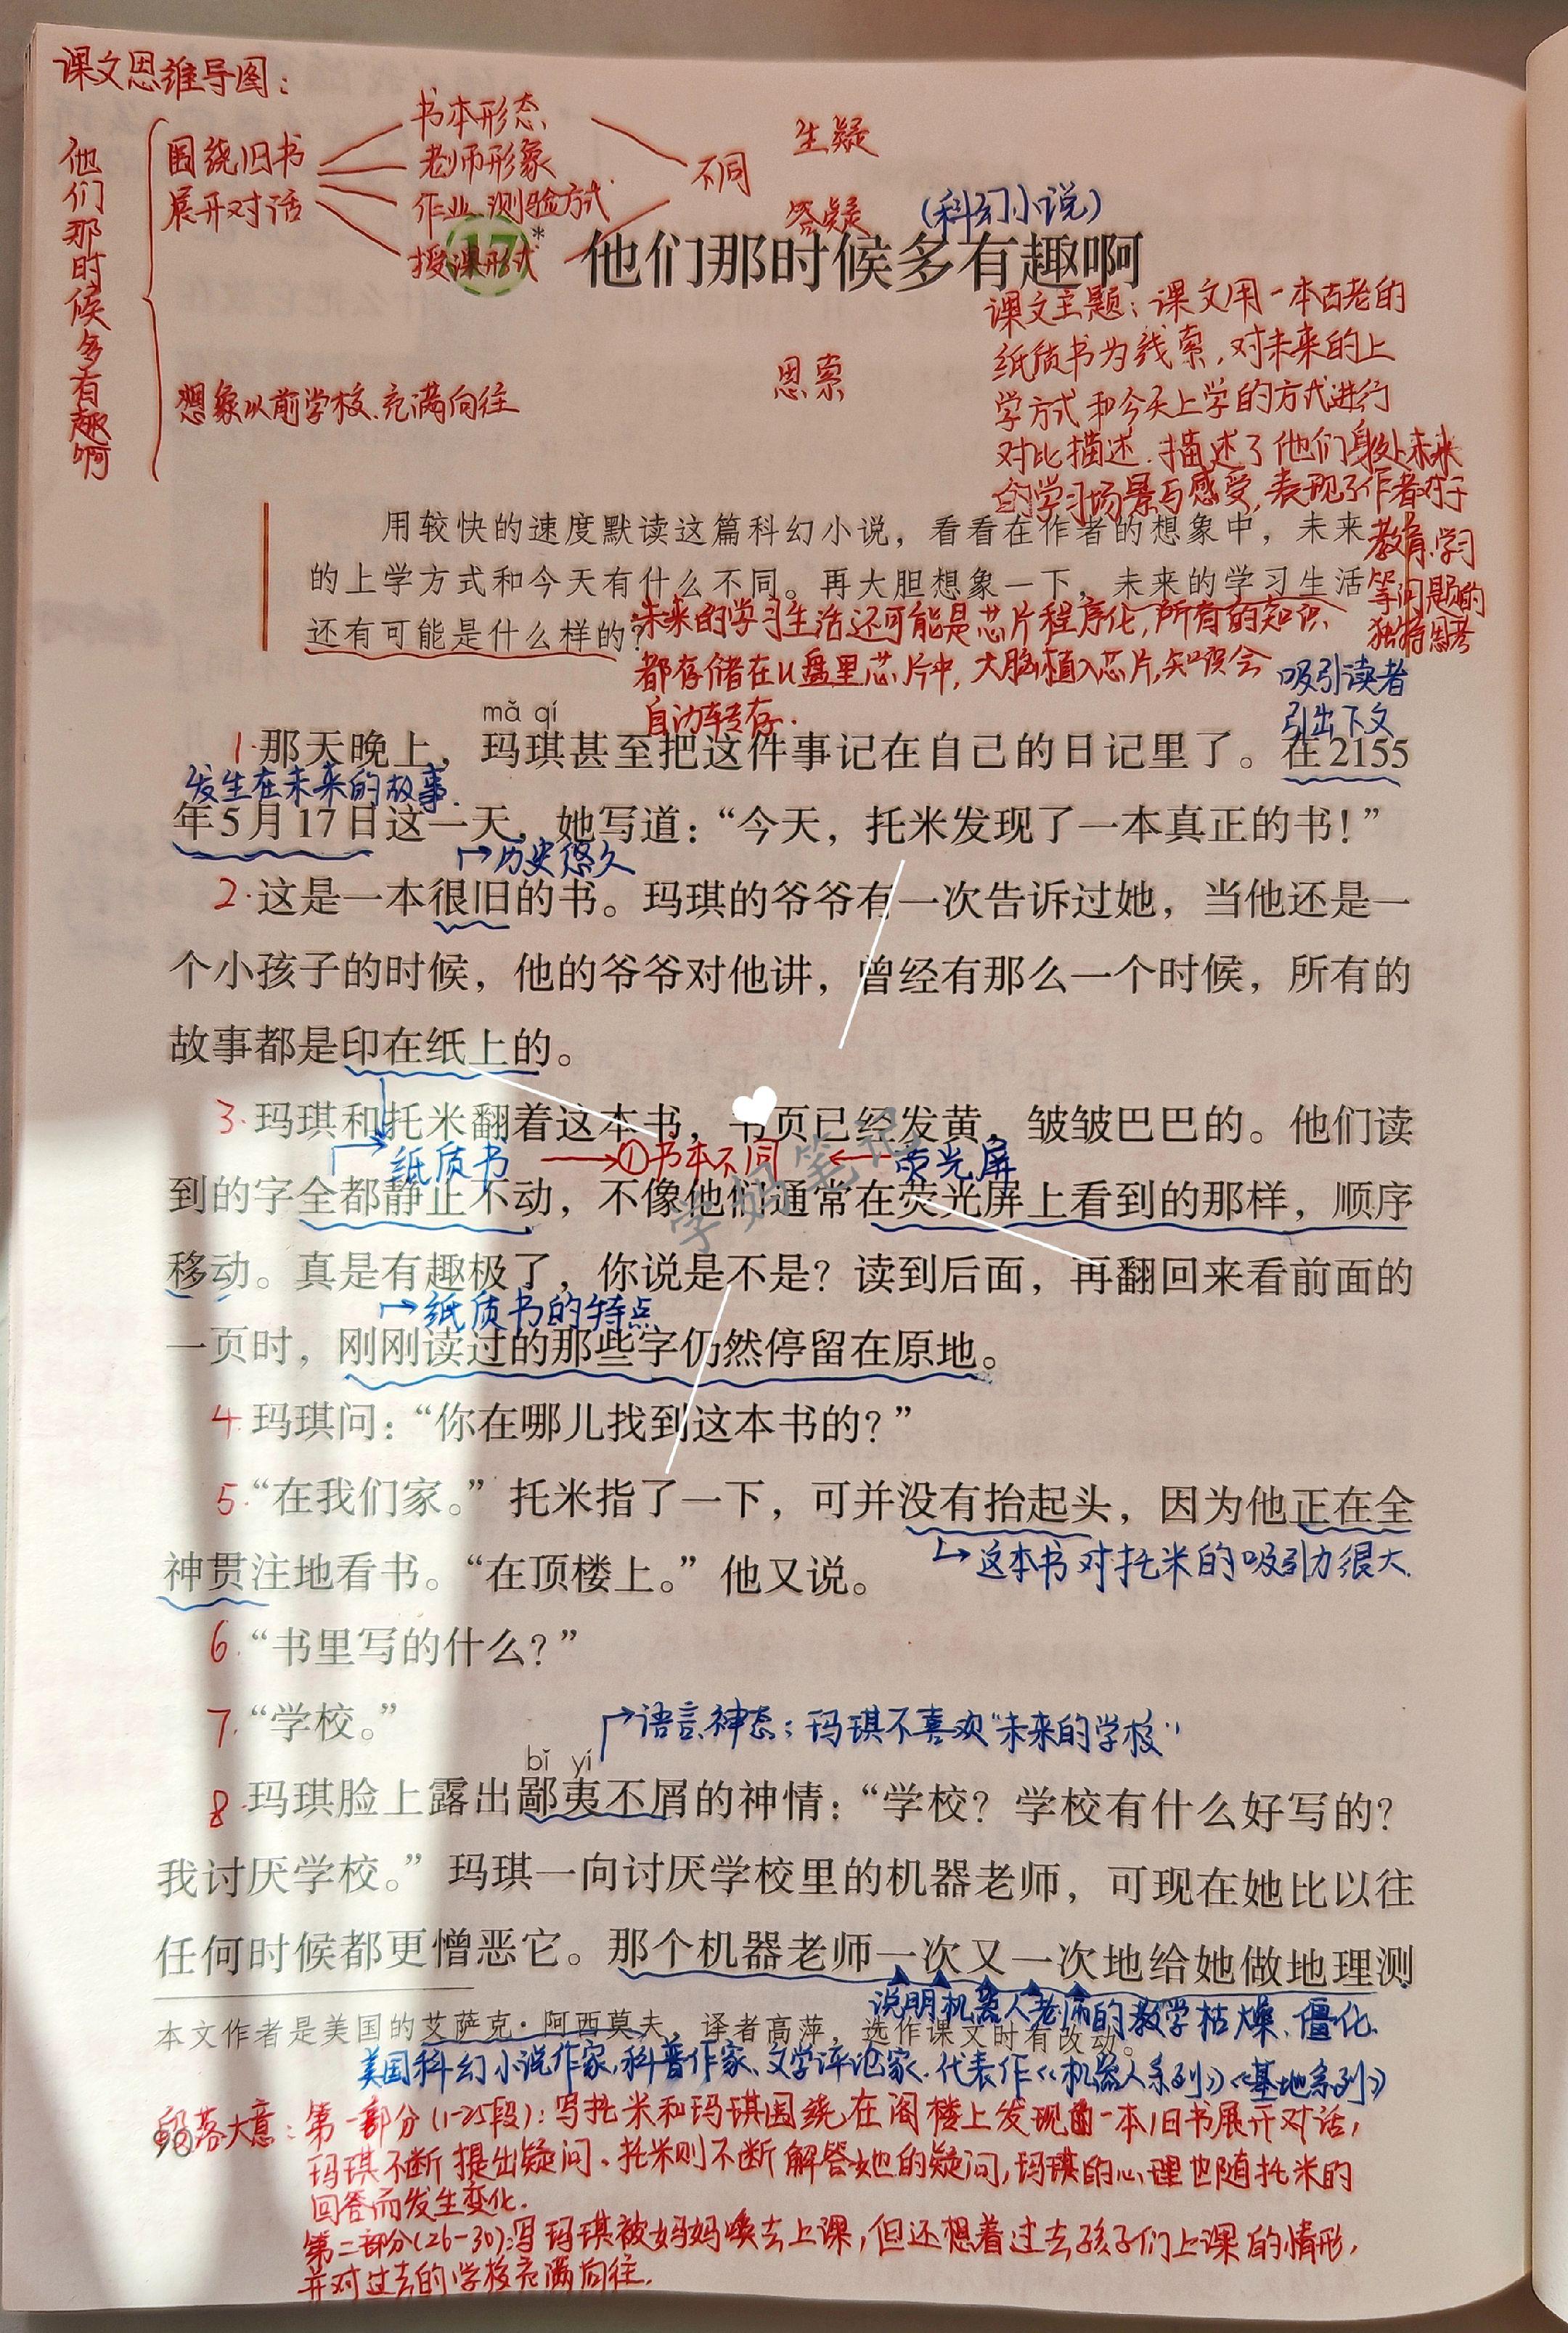 课文思维导图：
他们那时候多有趣啊
围绕旧书
展开对话
书本形态
老师形象
作业、测验方式
授课形式
不同
生疑
答疑
想象以前学校、充满向往
思索
（科幻小说）
17* 他们那时候多有趣啊
课文主题：课文用一本古老的
纸质书为线索，对未来的上
学方式和今天上学的方式进行
对比描述，描述了他们身处未来
的学习场景与感受，表现了作者对于
教育、学习
等问题的
独特思考
用较快的速度默读这篇科幻小说，看看在作者的想象中，未来
的上学方式和今天有什么不同。再大胆想象一下，未来的学习生活
还有可能是什么样的？
未来的学习生活还可能是芯片程序化，所有的知识
都存储在U盘里芯片中，大脑植入芯片，知识会
自动转存.
吸引读者
引出下文
mǎ qí
1.那天晚上，玛琪甚至把这件事记在自己的日记里了。在2155
发生在未来的故事.
年5月17日这一天，她写道：“今天，托米发现了一本真正的书！”
历史悠久
2.这是一本很旧的书。玛琪的爷爷有一次告诉过她，当他还是一
个小孩子的时候，他的爷爷对他讲，曾经有那么一个时候，所有的
故事都是印在纸上的。
3.玛琪和托米翻着这本书，书页已经发黄，皱皱巴巴的。他们读
纸质书 ①书本不同 荧光屏
到的字全都静止不动，不像他们通常在荧光屏上看到的那样，顺序
移动。真是有趣极了，你说是不是？读到后面，再翻回来看前面的
纸质书的特点
一页时，刚刚读过的那些字仍然停留在原地。
4.玛琪问：“你在哪儿找到这本书的？”
5.“在我们家。”托米指了一下，可并没有抬起头，因为他正在全
神贯注地看书。“在顶楼上。”他又说。
这本书对托米的吸引力很大.
6.“书里写的什么？”
7.“学校。”
语言、神态：玛琪不喜欢“未来的学校”
bǐ yí
8.玛琪脸上露出鄙夷不屑的神情：“学校？学校有什么好写的？
我讨厌学校。”玛琪一向讨厌学校里的机器老师，可现在她比以往
任何时候都更憎恶它。那个机器老师一次又一次地给她做地理测
说明机器人老师的教学枯燥、僵化.
本文作者是美国的艾萨克·阿西莫夫，译者高萍，选作课文时有改动。
美国科幻小说作家，科普作家、文学评论家.代表作《机器人系列》《基地系列》
90
段落大意：第一部分（1-25段）：写托米和玛琪围绕在阁楼上发现的一本旧书展开对话，
玛琪不断提出疑问、托米则不断解答她的疑问，玛琪的心理也随托米的
回答而发生变化.
第二部分（26-30）：写玛琪被妈妈唤去上课，但还想着过去孩子们上课的情形，
并对过去的学校充满向往.
学妈笔记